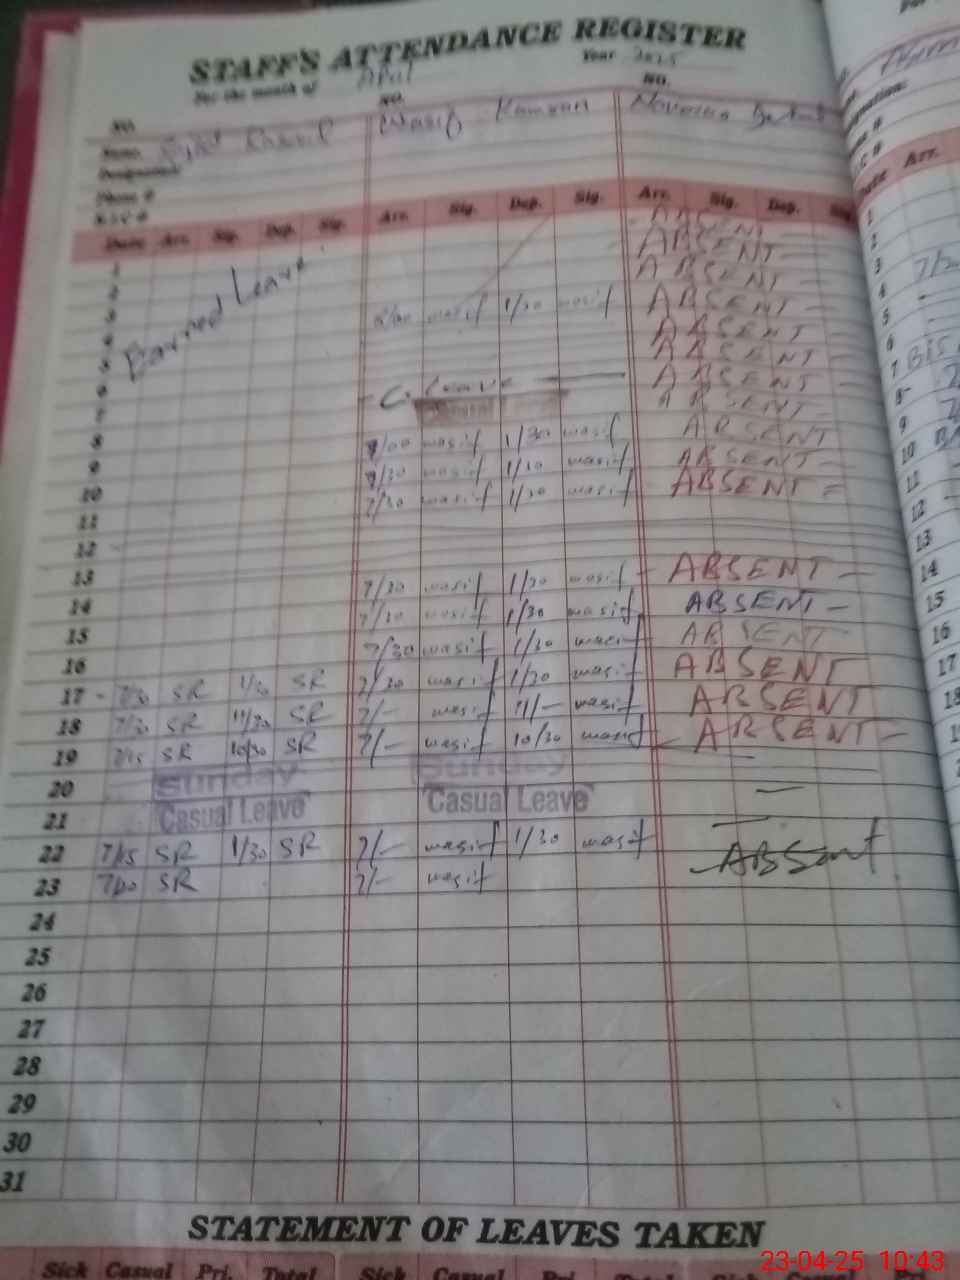 STAFF'S ATTENDANCE REGISTER
For the month of April Year 2025
NO. NO. NO.
Name Wasif Kamran
Designation
Phone #
N.I.C #
Date Arr. Sig. Dep. Sig. Arr. Sig. Dep. Sig. Arr. Sig. Dep. Sig.
Earned Leave
1 ABSENT
2 ABSENT
3 ABSENT
4 wasif 1/30 wasif ABSENT
5 ABSENT
6 ABSENT
7 C. Leave ABSENT
ABSENT
8 wasif 1/30 wasif ABSENT
9 7/30 wasif 1/30 wasif ABSENT
10 7/30 wasif 1/30 wasif ABSENT
11
12
13 7/30 wasif 1/30 wasif ABSENT
14 7/30 wasif 1/30 wasif ABSENT
15 7/30 wasif 1/30 wasif ABSENT
16 7/30 wasif 1/30 wasif ABSENT
17 7/30 SR 1/30 SR 7/- wasif wasif ABSENT
18 7/30 SR 11/30 SR 7/- wasif 10/30 wasif ABSENT
19 7/15 SR 10/30 SR
Sunday Sunday
20
Casual Leave Casual Leave
21
22 7/15 SR 1/30 SR 7/- wasif 1/30 wasif ABSent
23 SR 7/- wasif
24
25
26
27
28
29
30
31
STATEMENT OF LEAVES TAKEN
Sick Casual Pri. Total Sick Casual Pri. Total Sick Casual Pri. Total
Arr.
1
2
3
4
5
6
7
8
9
10
11
12
13
14
15
16
17
18
23-04-25 10:43